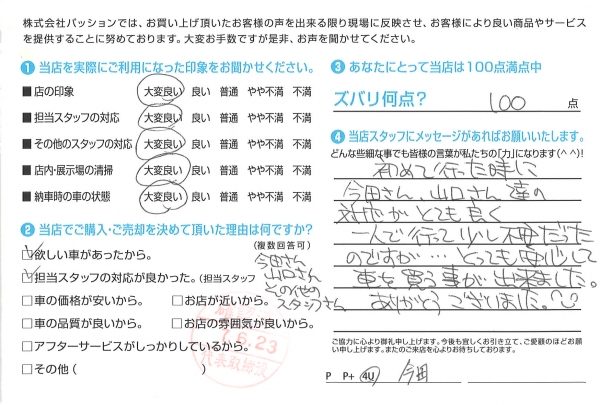 株式会社パッションでは、お買い上げ頂いたお客様の声を出来る限り現場に反映させ、お客様により良い商品やサービス
を提供することに努めております。大変お手数ですが是非、お声を聞かせてください。
① 当店を実際にご利用になった印象をお聞かせください。
■ 店の印象 大変良い 良い 普通 やや不満 不満
■ 担当スタッフの対応 大変良い 良い 普通 やや不満 不満
■ その他のスタッフの対応 大変良い 良い 普通 やや不満 不満
■ 店内・展示場の清掃 大変良い 良い 普通 やや不満 不満
■ 納車時の車の状態 大変良い 良い 普通 やや不満 不満
② 当店でご購入・ご売却を決めて頂いた理由は何ですか?
(複数回答可)
☑欲しい車があったから。
☑担当スタッフの対応が良かった。(担当スタッフ
今田さん
山口さん
その他の
スタッフさん
□車の価格が安いから。 □お店が近いから。
□車の品質が良いから。 □お店の雰囲気が良いから。
□アフターサービスがしっかりしているから。
□その他 ( )
6.23
代表取締役
③ あなたにとって当店は100点満点中
ズバリ何点? 100 点
④ 当店スタッフにメッセージがあればお願いいたします。
どんな些細な事でも皆様の言葉が私たちの「力」になります(^ ^)!
初めて行った時に
今田さん、山口さん達の
対応がとても良く
一人で行って少し不安だった
のですが…とっても安心して
車を買う事が出来ました。
ありがとうございました。
ご協力に心より御礼申し上げます。今後も宜しくお引き立て、ご愛顧のほどお願
い申し上げます。またのご来店を心よりお待ちしております。
P P+ 4U 今田